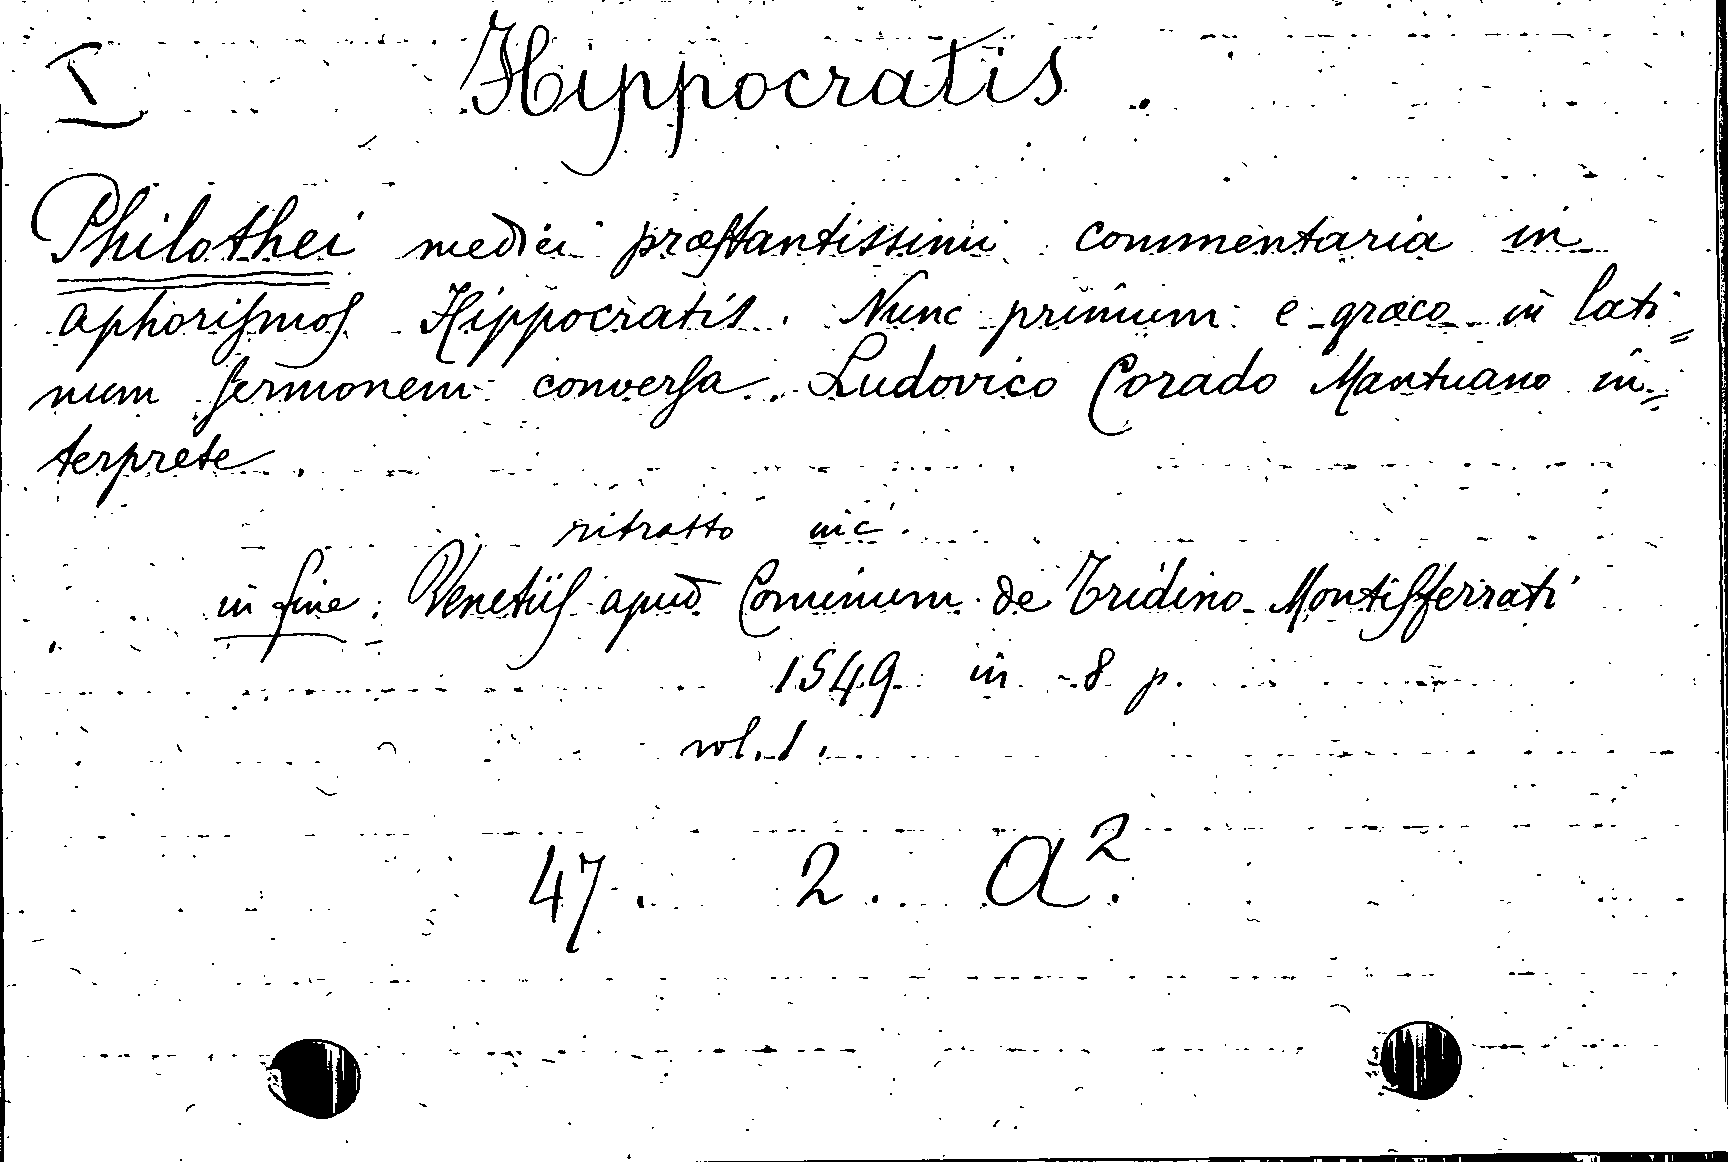 I Hippocratis.
Philothei medici præſtantissimi commentaria in
aphoriſmoſ Hippocratis. Nunc primum e græco in lati=
num ſermonem converſa. Ludovico Corado Mantuano in=
terprete.
ritratto inc.
in fine: Venetiiſ apud Cominum de Tridino Montiſferrati
1549 in 8 p.
vol. 1.
47. 2. a².